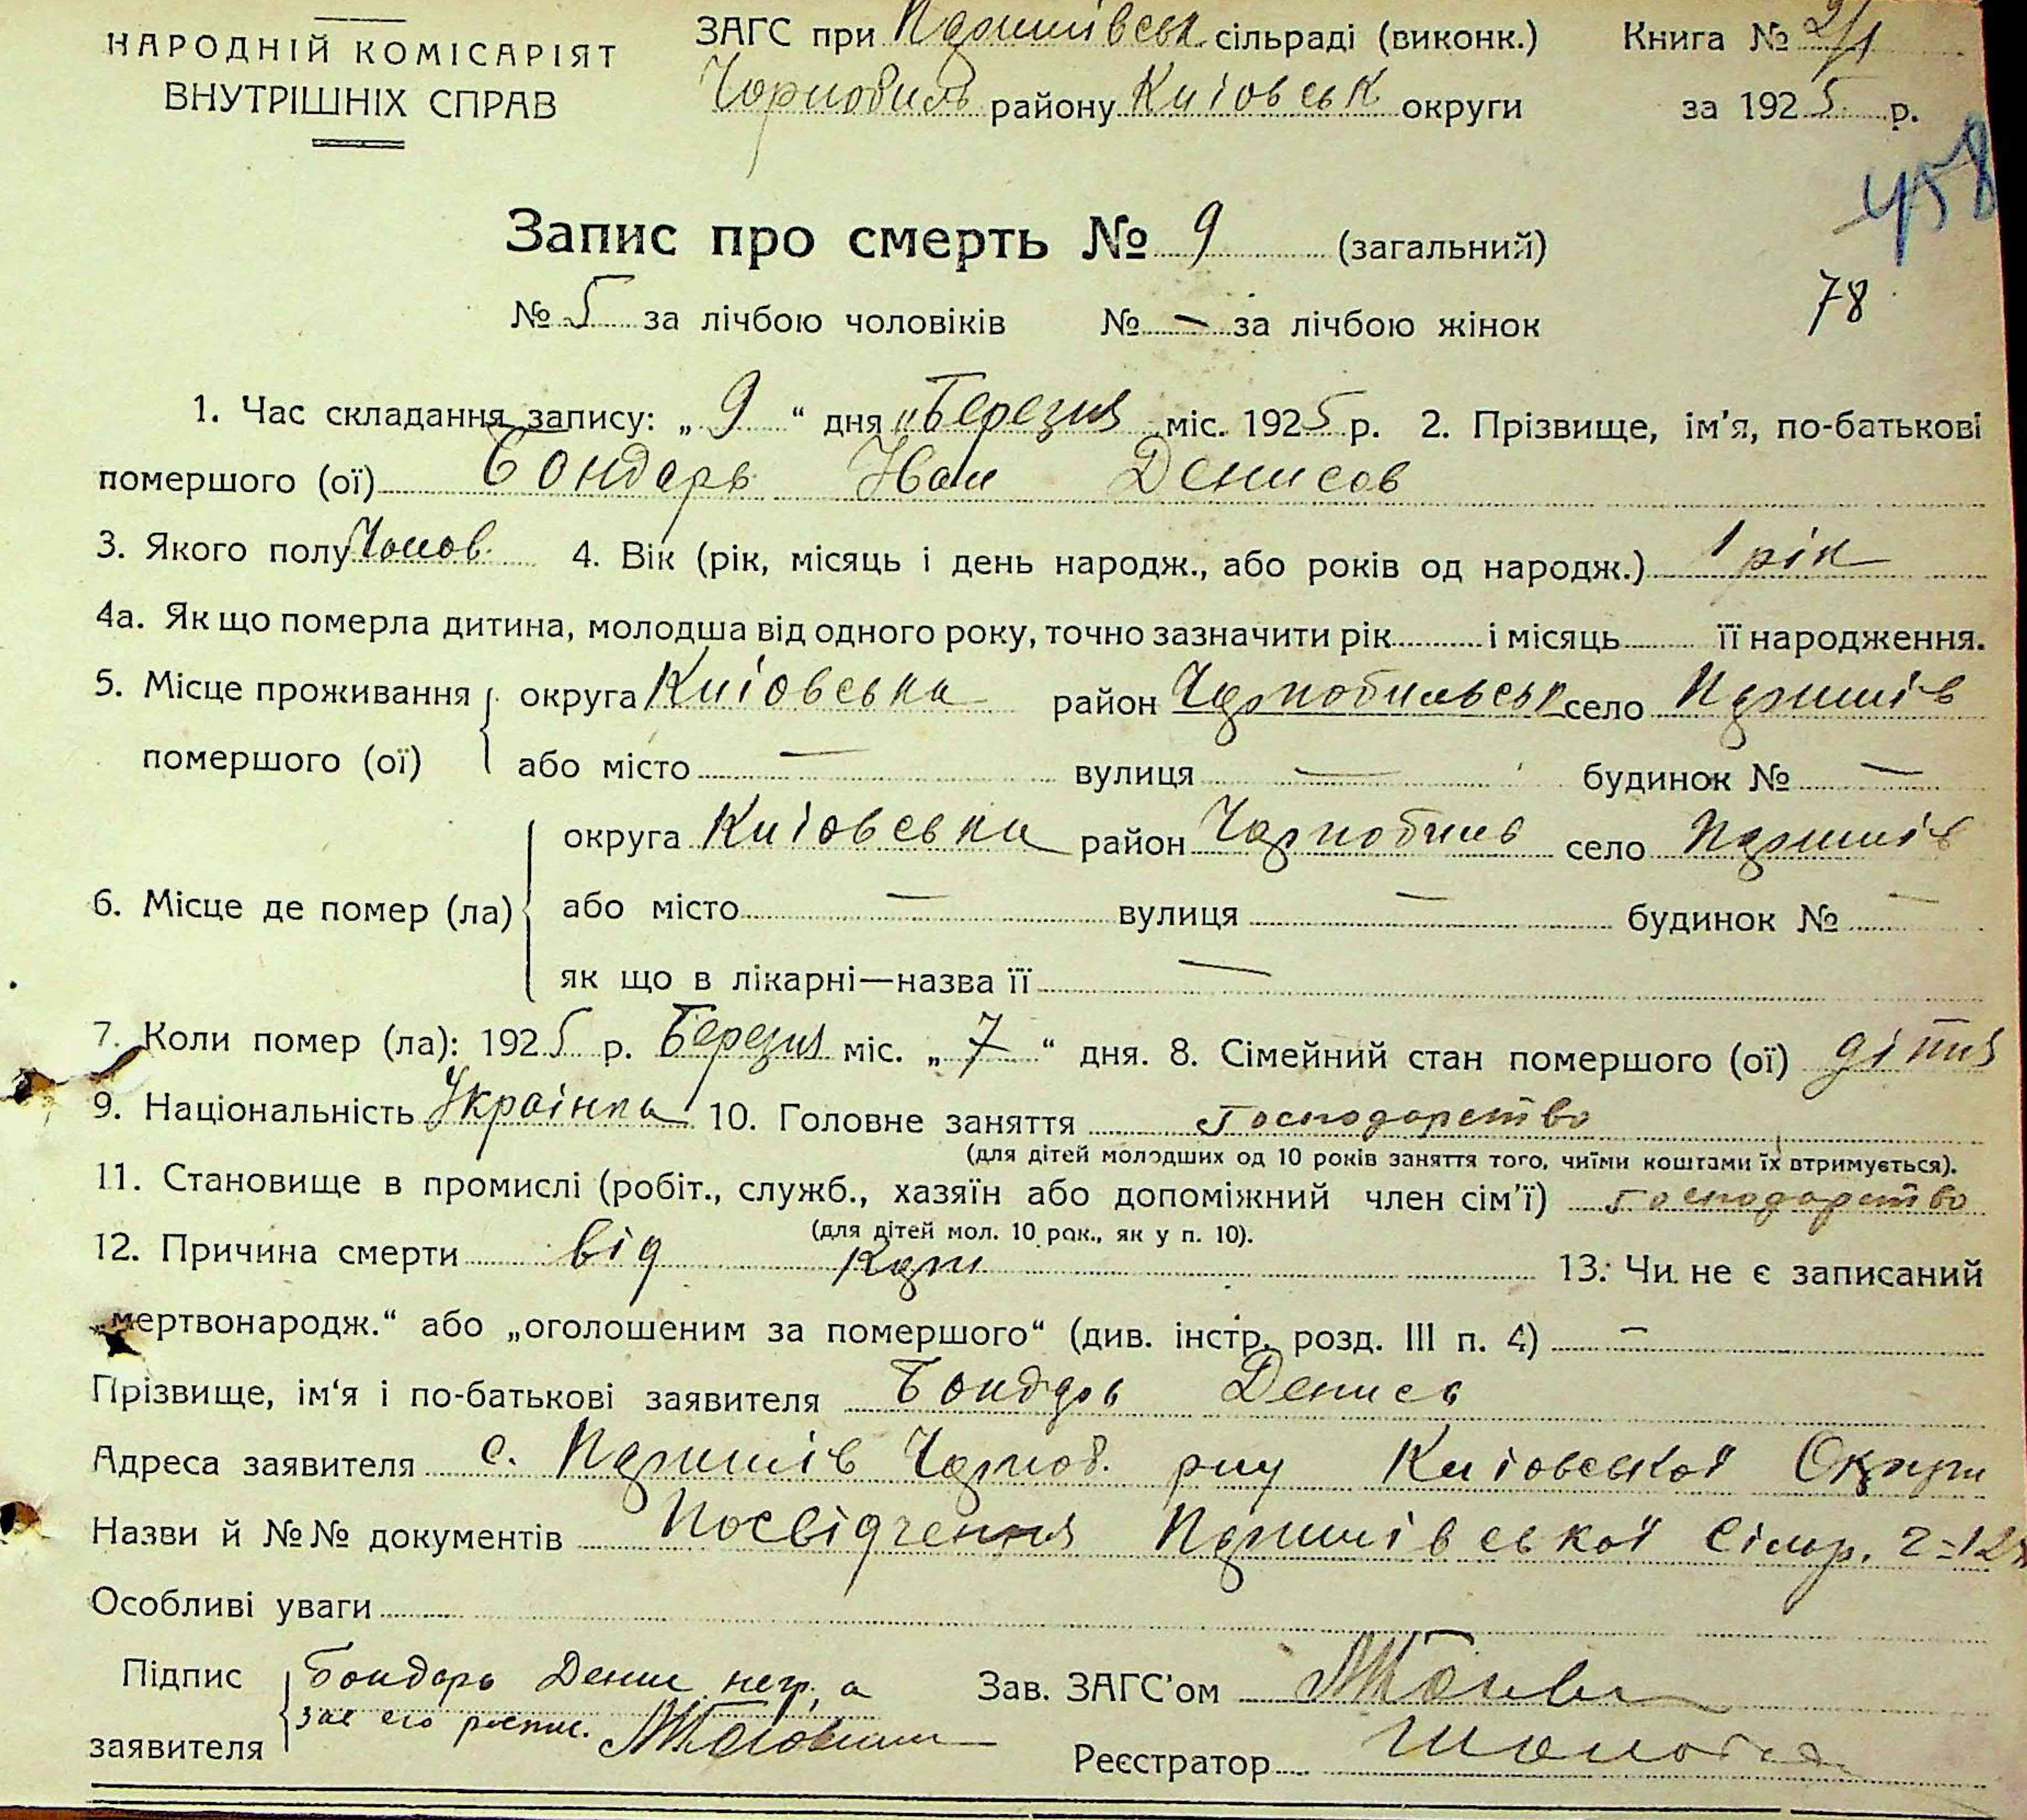 НАРОДНІЙ КОМІСАРІЯТ
ВНУТРІШНІХ СПРАВ
ЗАГС при Паришівськ. сільраді (виконк.)
Чорнобиль району Киівськ округи
Книга № 2/1
за 1925 р.
458
Запис про смерть № 9 (загальний)
№ 5 за лічбою чоловіків № — за лічбою жінок
78
1. Час складання запису: „ 9 “ дня „Березня міс. 1925 р. 2. Прізвище, ім'я, по-батькові
помершого (ої) Бондарь Иван Денисов
3. Якого полу Чолов. 4. Вік (рік, місяць і день народж., або років од народж.) 1 рік
4а. Як що померла дитина, молодша від одного року, точно зазначити рік і місяць її народження.
5. Місце проживання помершого (ої)
округа Киіовська район Чарнобильськ село Паришів
або місто — вулиця — будинок № —
6. Місце де помер (ла)
округа Киіовська район Чарнобиль село Паришів
або місто — вулиця — будинок № —
як що в лікарні—назва її —
7. Коли помер (ла): 1925 р. Березня міс. „ 7 “ дня. 8. Сімейний стан помершого (ої) дітия
9. Національність Украінка 10. Головне заняття Господарство
(для дітей молодших од 10 років заняття того, чиїми коштами їх втримується).
11. Становище в промислі (робіт., служб., хазяїн або допоміжний член сім'ї) Господарство
(для дітей мол. 10 рок., як у п. 10).
12. Причина смерти від Кари 13. Чи не є записаний
„мертвонародж.“ або „оголошеним за помершого“ (див. інстр. розд. III п. 4) —
Прізвище, ім'я і по-батькові заявителя Бондарь Денись
Адреса заявителя с. Паришів Чарноб. р-ну Киіовськоі Округи
Назви й №№ документів Посвідчення Паришівськоі Сільр.
Особливі уваги
Підпис заявителя
Бондарь Денис негр, а
зае его роспис.
Зав. ЗАГС'ом
Реєстратор